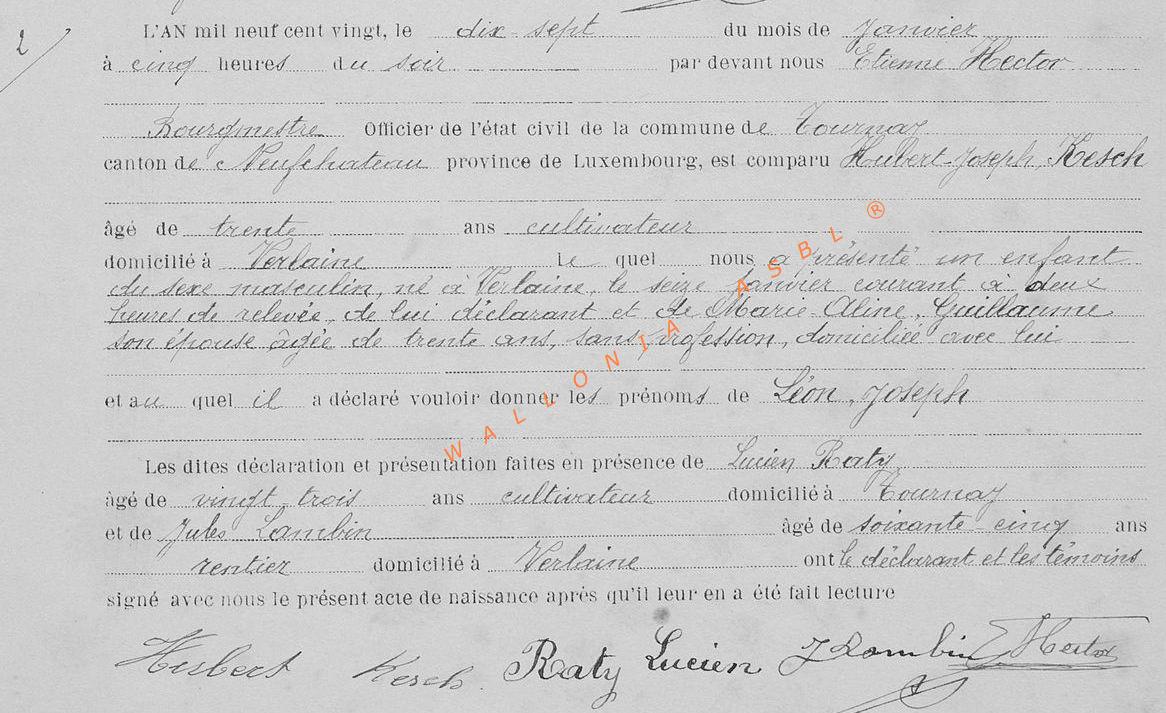 2
L'AN mil neuf cent vingt, le dix-sept du mois de Janvier
à cinq heures du soir par devant nous Etienne Hector
Bourgmestre Officier de l'état civil de la commune de Tournay
canton de Neufchateau province de Luxembourg, est comparu Hubert-Joseph, Kesch
âgé de trente ans cultivateur
domicilié à Verlaine le quel nous a présenté un enfant
du sexe masculin, né à Verlaine, le seize Janvier courant à deux
heures de relevée, de lui déclarant et de Marie-Aline, Guillaume
son épouse âgée de trente ans, sans profession, domiciliée avec lui
et au quel il a déclaré vouloir donner les prénoms de Léon, Joseph
Les dites déclaration et présentation faites en présence de Lucien Raty
âgé de vingt-trois ans cultivateur domicilié à Tournay
et de Jules Lambin âgé de soixante-cinq ans
rentier domicilié à Verlaine ont le déclarant et les témoins
signé avec nous le présent acte de naissance après qu'il leur en a été fait lecture
Hubert Kesch. Raty Lucien J Lambin E Hector
WALLONIA ASBL ®